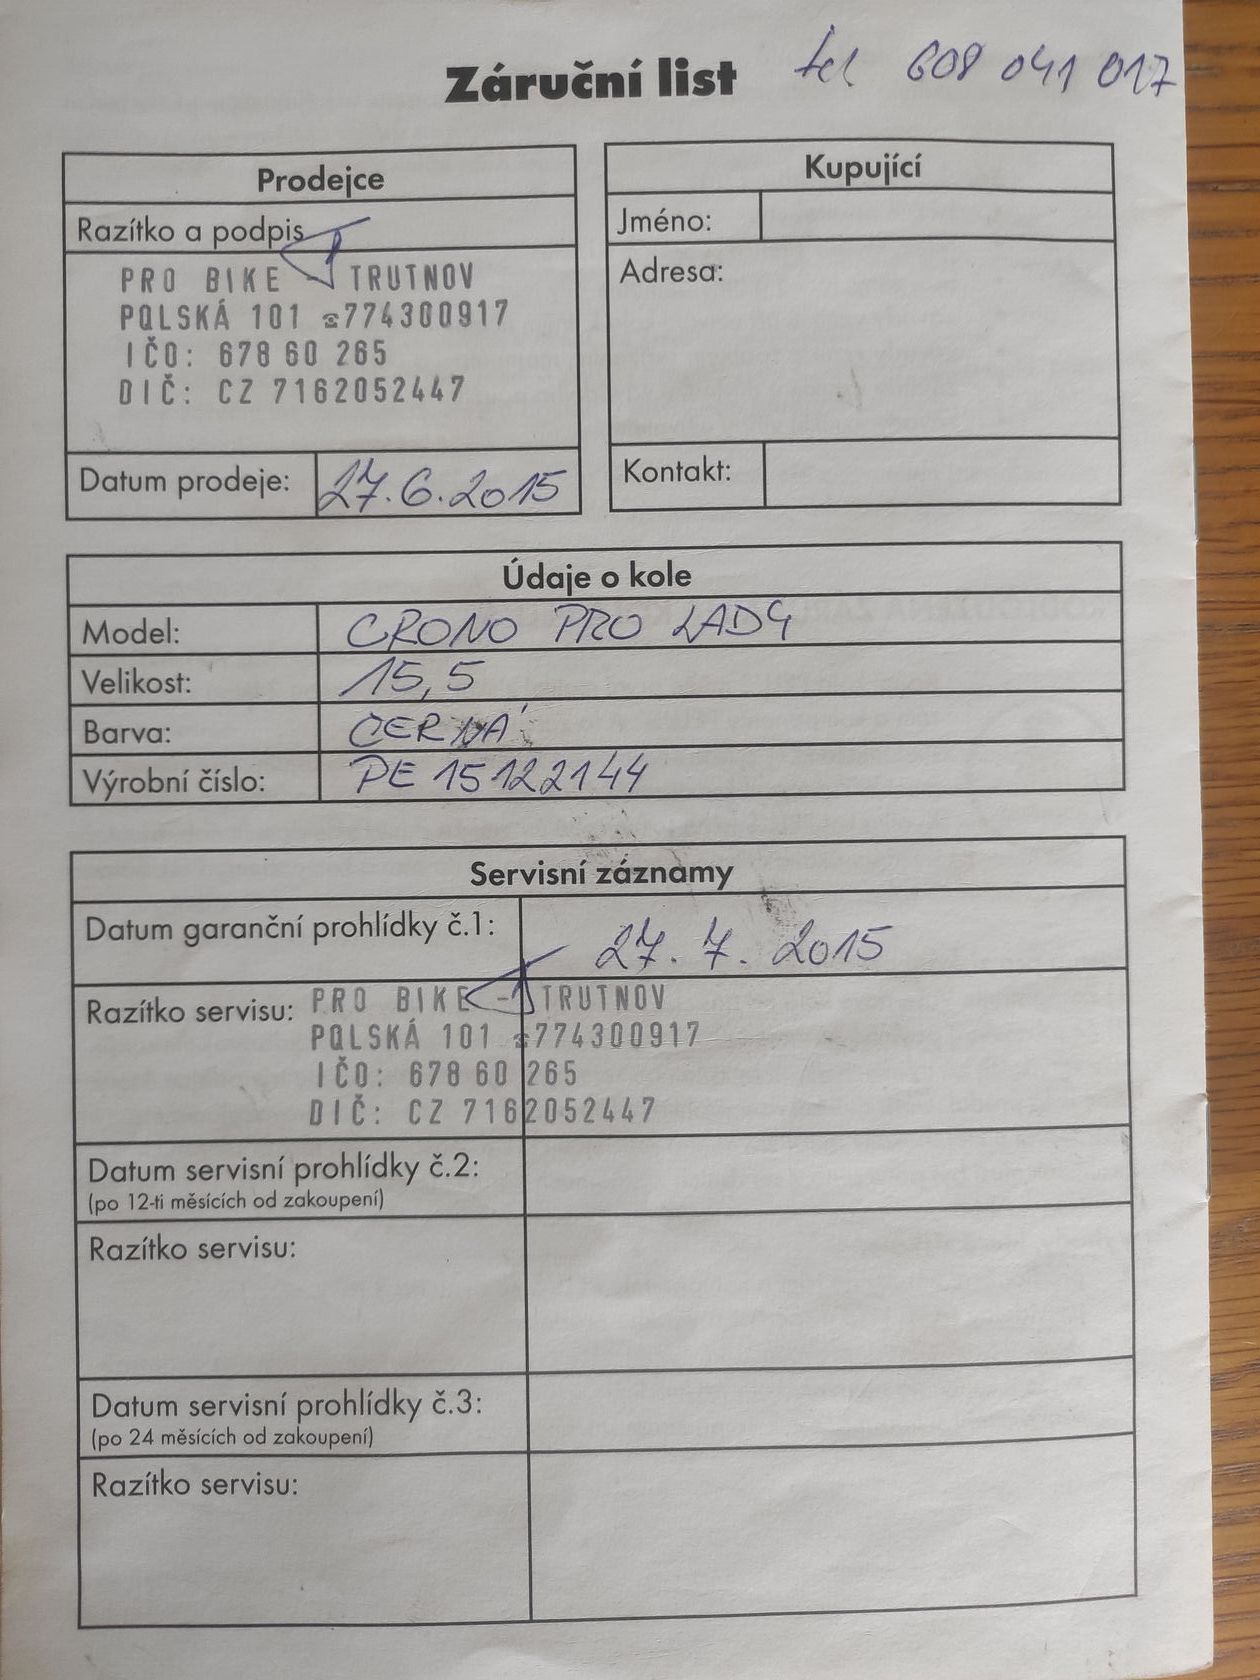 Záruční list
tel 608 041 017
Prodejce
Razítko a podpis
PRO BIKE - TRUTNOV
POLSKÁ 101 ☎774300917
IČO: 678 60 265
DIČ: CZ 7162052447
Datum prodeje: 27.6.2015
Kupující
Jméno:
Adresa:
Kontakt:
Údaje o kole
Model: CRONO PRO LADY
Velikost: 15,5
Barva: ČERNÁ
Výrobní číslo: PE 15122144
Servisní záznamy
Datum garanční prohlídky č.1: 27. 7. 2015
Razítko servisu: PRO BIKE - TRUTNOV
POLSKÁ 101 ☎774300917
IČO: 678 60 265
DIČ: CZ 7162052447
Datum servisní prohlídky č.2:
(po 12-ti měsících od zakoupení)
Razítko servisu:
Datum servisní prohlídky č.3:
(po 24 měsících od zakoupení)
Razítko servisu: